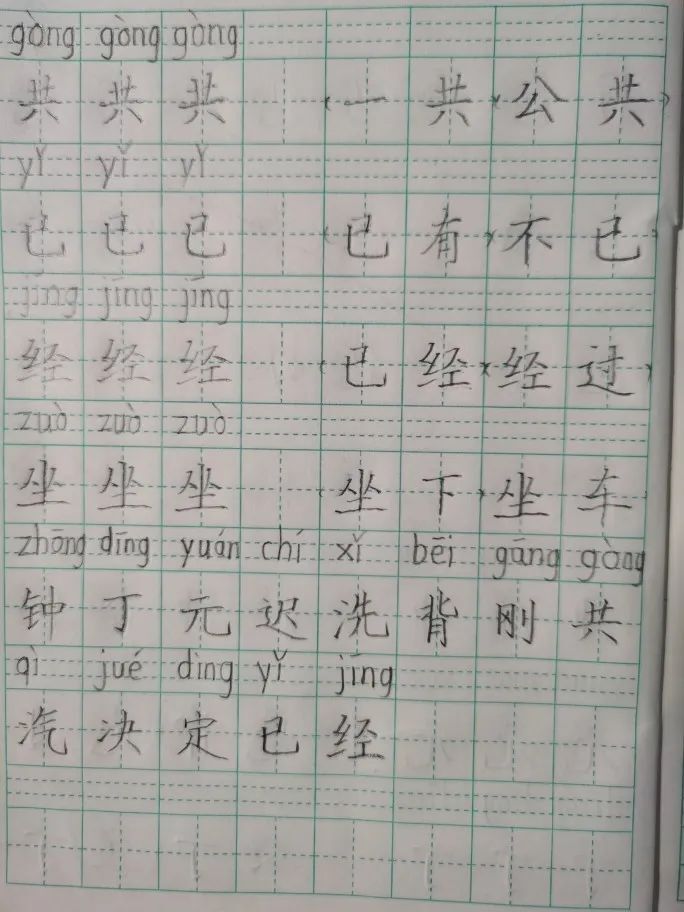 gòng gòng gòng
共 共 共 (一 共、公 共)
yǐ yǐ yǐ
已 已 已 (已 有、不 已)
jīng jīng jīng
经 经 经 (已 经、经 过)
zuò zuò zuò
坐 坐 坐 (坐 下、坐 车
zhōng dīng yuán chí xǐ bēi gāng gòng
钟 丁 元 迟 洗 背 刚 共
qì jué dìng yǐ jīng
汽 决 定 已 经